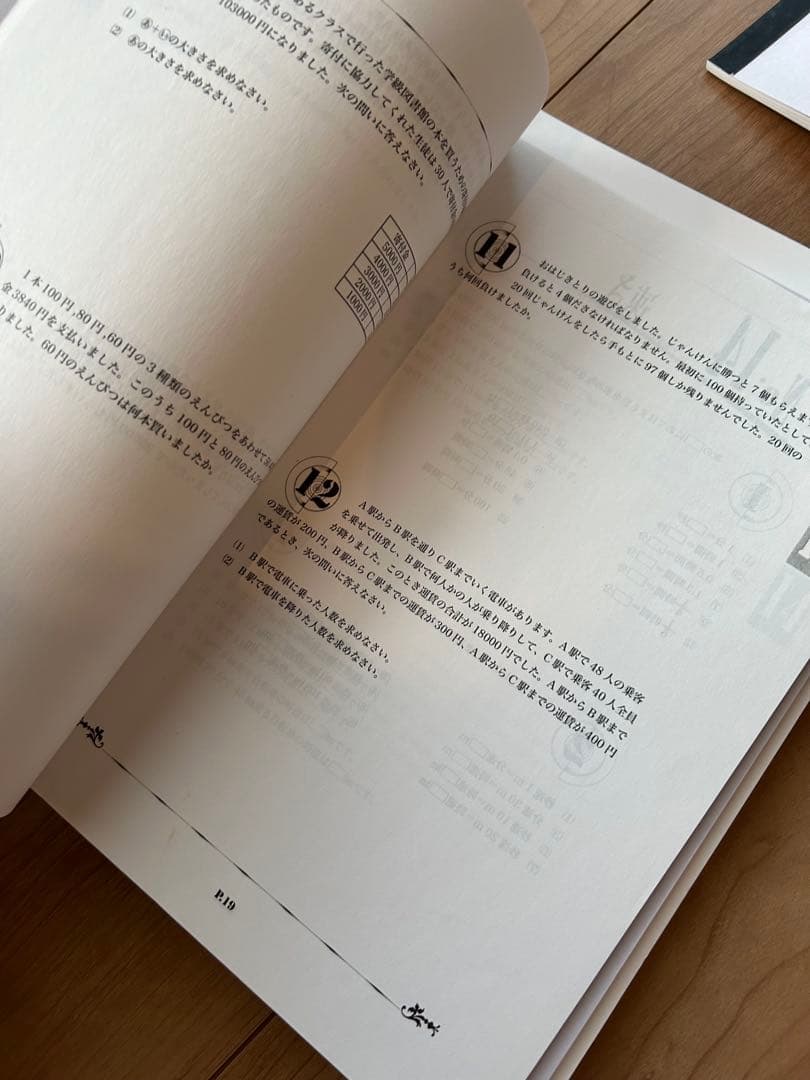 あるクラスで行った学級図書館の本を買うための
たものです。寄付に協力してくれた生徒は30人で
103000円になりました。次の問いに答えなさい。
(1) あ+いの大きさを求めなさい。
(2) あの大きさを求めなさい。
寄付金
5000円
4000円
3000円
2000円
1000円
1本100円,80円,60円の3種類のえんぴつをあわせて
金3840円を支払いました。このうち100円と80円のえん
りました。60円のえんぴつは何本買いましたか。
11
おはじきとりの遊びをしました。じゃんけんに勝つと7個もらえま
負けると4個ださなければなりません。最初に100個持っていたとして
20回じゃんけんをしたら手もとに97個しか残りませんでした。20回の
うち何回負けましたか。
12
A駅からB駅を通りC駅までいく電車があります。A駅で48人の乗客
を乗せて出発し、B駅で何人かの人が乗り降りして、C駅で乗客40人全員
が降りました。このとき運賃の合計が18000円でした。A駅からB駅まで
の運賃が200円、B駅からC駅までの運賃が300円、A駅からC駅までの運賃が400円
であるとき、次の問いに答えなさい。
(1) B駅で電車に乗った人数を求めなさい。
(2) B駅で電車を降りた人数を求めなさい。
P.19